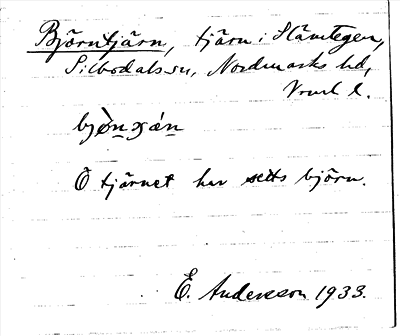 Björntjärn, tjärn i Slävtegen,
Silbodals sn, Nordmarks hd,
Vrml l.
bjòn̲ɔ̯án̲
Ö tjärnet har setts björn.
E. Andersson 1933.